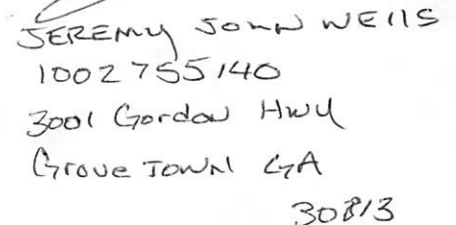 JEREMY JOHN WEllS
1002755140
3001 Gordon Hwy
GroveTOWN GA
30813